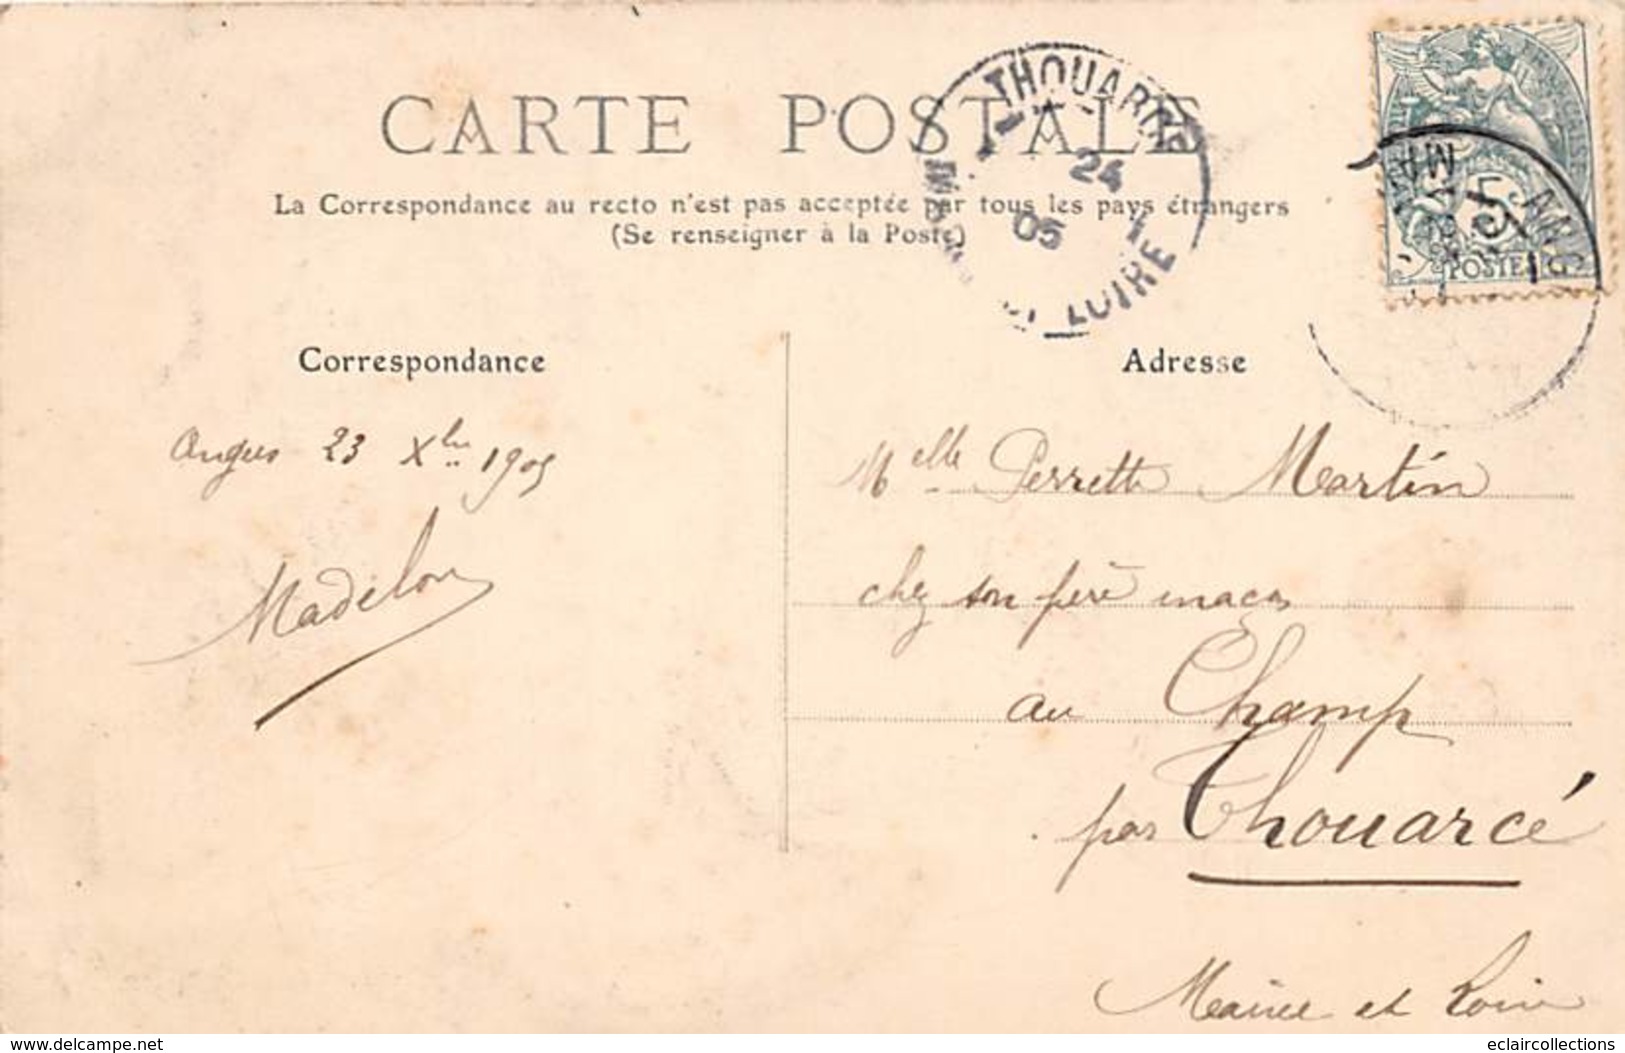 CARTE POSTALE
THOUARCÉ
24
05
LOIRE
La Correspondance au recto n'est pas acceptée par tous les pays étrangers
(Se renseigner à la Poste)
5
POSTES
Correspondance
Adresse
Angers 23 Xbre 1905
Madelon
Melle Perrette Martin
chez son père maçon
au Champ
par Thouarcé
Maine et Loire
www.delcampe.net
eclaircollections